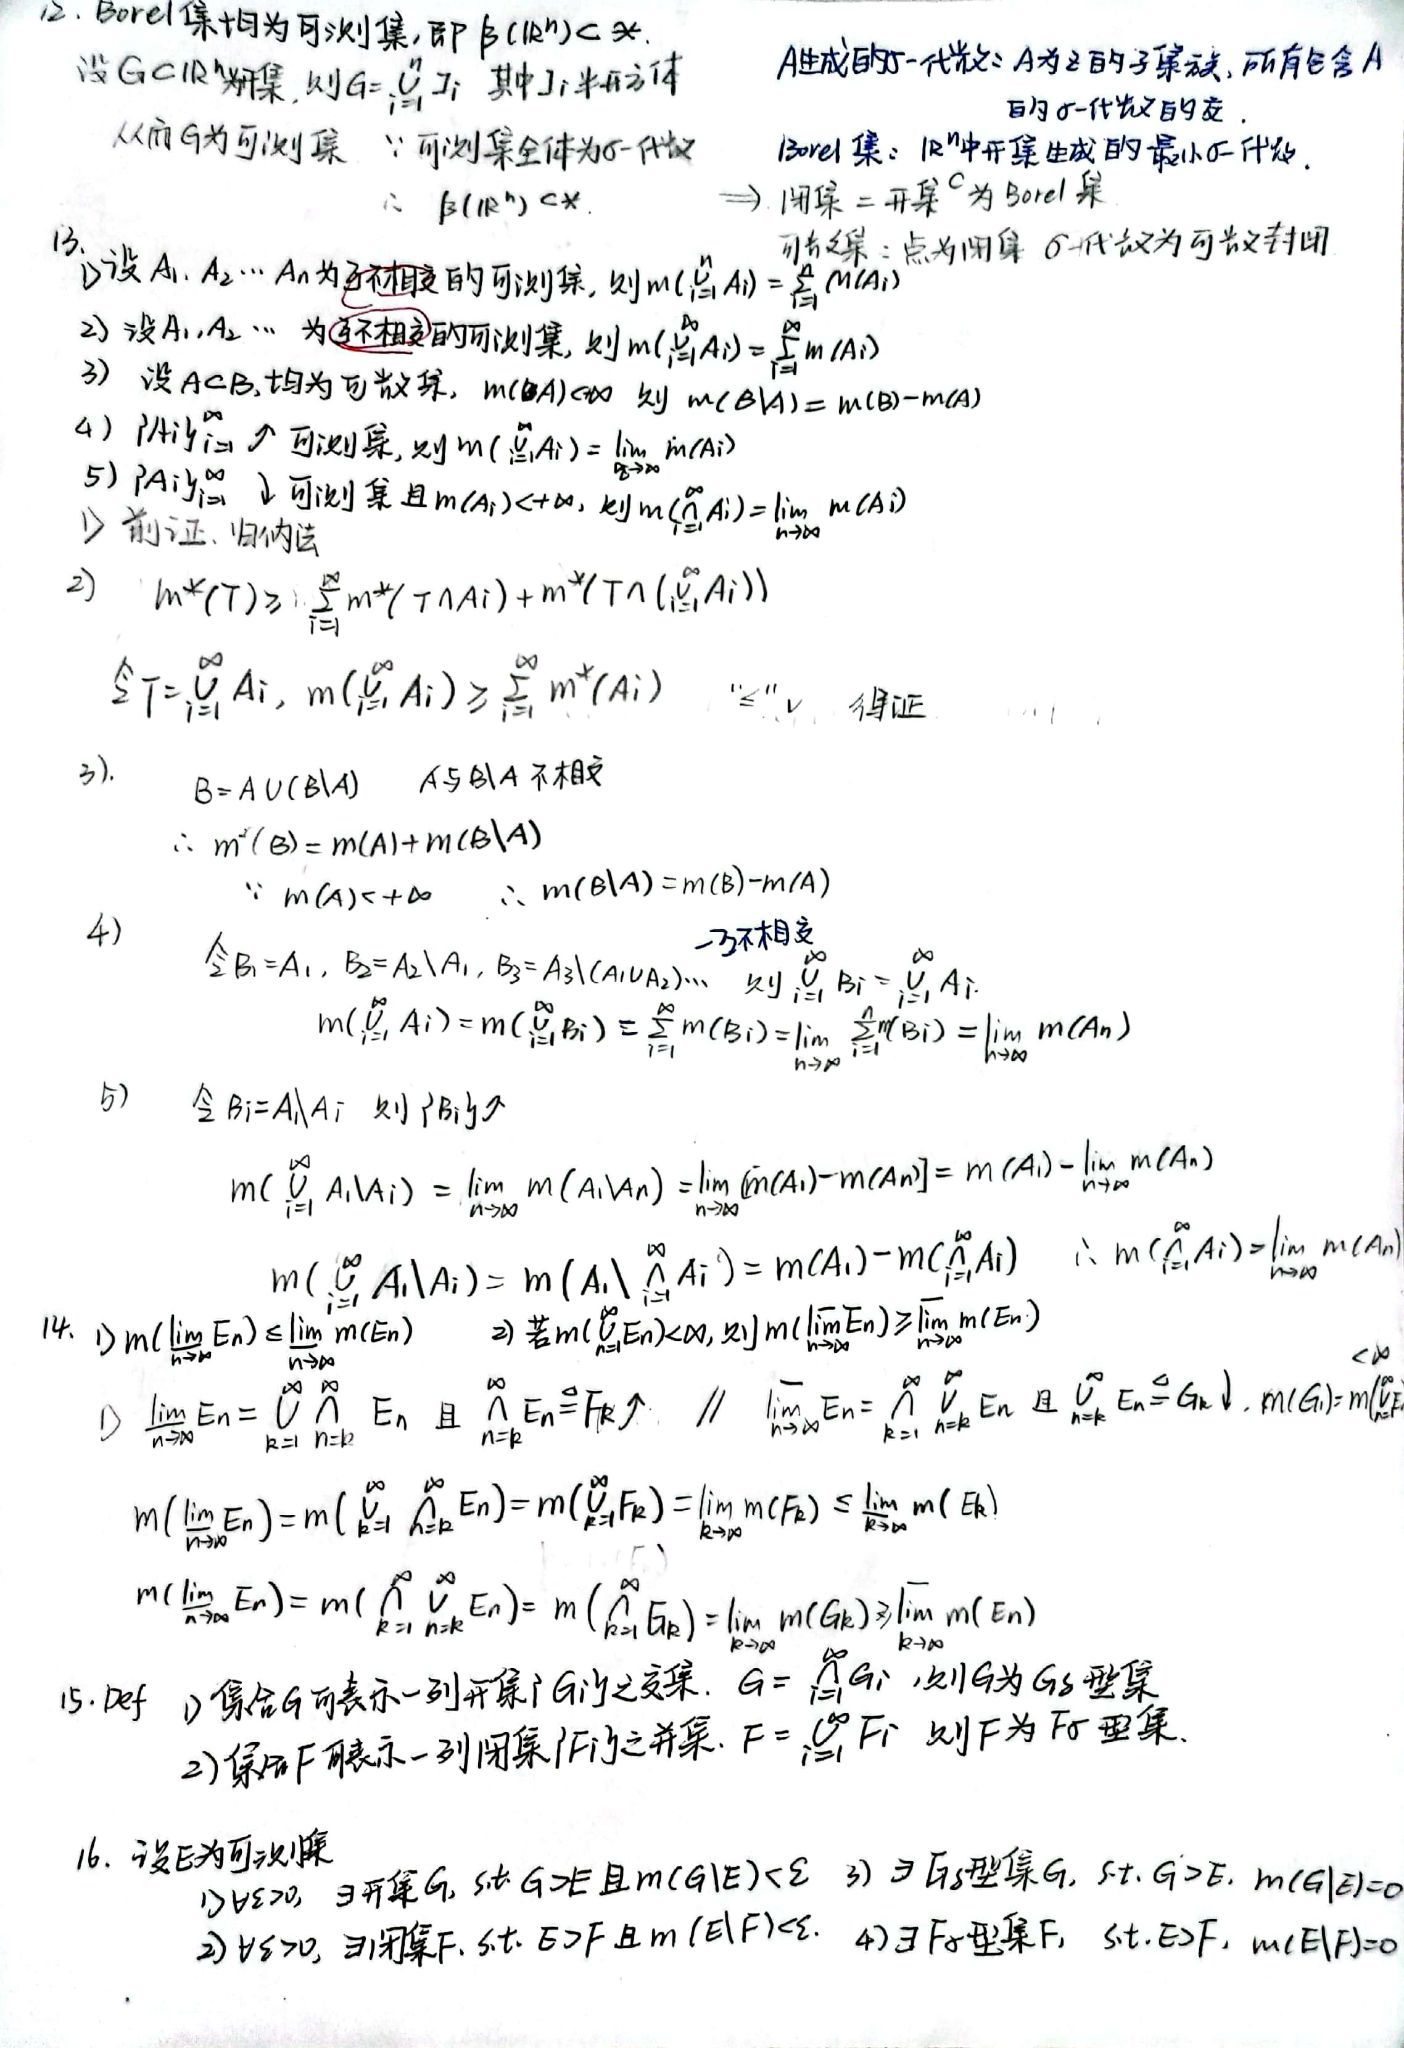 12. Borel集均为可测集,即 β(ℝⁿ)⊂*.
设G⊂ℝⁿ为开集,则G=⋃_{i=1}^{n} Ji 其中Ji半开方体
从而G为可测集 ∵可测集全体为σ-代数
∴ β(ℝⁿ)⊂*.
A生成的σ-代数: A为Z的子集族,所有包含A
的σ-代数的交.
Borel集: ℝⁿ中开集生成的最小σ-代数.
⇒ 闭集=开集^C为Borel集
可数集:点为闭集 σ-代数为可数封闭
13.
1) 设A₁,A₂⋯An为互不相交的可测集,则m(⋃_{i=1}^{n} Ai)=∑_{i=1}^{n} m(Ai)
2) 设A₁,A₂⋯为互不相交的可测集,则m(⋃_{i=1}^{∞} Ai)=∑_{i=1}^{∞} m(Ai)
3) 设A⊂B,均为可数集, m(A)<∞ 则 m(B\A)=m(B)-m(A)
4) {Ai}_{i=1}^{∞}↗可测集,则m(⋃_{i=1}^{∞} Ai)=lim m(Ai)
5) {Ai}_{i=1}^{∞}↓可测集且m(Ai)<+∞,则m(⋂_{i=1}^{∞} Ai)=lim_{n→∞} m(Ai)
1) 前证、归纳法
2) m*(T)≥∑_{i=1}^{∞} m*(T∩Ai)+m*(T∩(⋃_{i=1}^{∞} Ai))
令T=⋃_{i=1}^{∞} Ai, m(⋃_{i=1}^{∞} Ai)≥∑_{i=1}^{∞} m*(Ai) "≤"√ 得证
3). B=A∪(B\A) A与B\A不相交
∴ m*(B)=m(A)+m(B\A)
∵ m(A)<+∞ ∴ m(B\A)=m(B)-m(A)
4) 令B₁=A₁, B₂=A₂\A₁, B₃=A₃\(A₁∪A₂)⋯ →互不相交 则⋃_{i=1}^{∞} Bi=⋃_{i=1}^{∞} Ai.
m(⋃_{i=1}^{∞} Ai)=m(⋃_{i=1}^{∞} Bi)=∑_{i=1}^{∞} m(Bi)=lim_{n→∞} ∑_{i=1}^{n} m(Bi)=lim_{n→∞} m(An)
5) 令Bi=A₁\Ai 则{Bi}↗
m(⋃_{i=1}^{∞} A₁\Ai)=lim_{n→∞} m(A₁\An)=lim_{n→∞} [m(A₁)-m(An)]=m(A₁)-lim_{n→∞} m(An)
m(⋃_{i=1}^{∞} A₁\Ai)=m(A₁\⋂_{i=1}^{∞} Ai)=m(A₁)-m(⋂_{i=1}^{∞} Ai) ∴ m(⋂_{i=1}^{∞} Ai)=lim_{n→∞} m(An)
14. 1) m(\underline{lim}_{n→∞} En)≤\underline{lim}_{n→∞} m(En) 2) 若m(⋃_{n=1}^{∞} En)<∞,则m(\overline{lim}_{n→∞} En)≥\overline{lim}_{n→∞} m(En)
1) \underline{lim}_{n→∞} En=⋃_{k=1}^{∞} ⋂_{n=k}^{∞} En 且 ⋂_{n=k}^{∞} En≜Fk↗. // \overline{lim}_{n→∞} En=⋂_{k=1}^{∞} ⋃_{n=k}^{∞} En 且 ⋃_{n=k}^{∞} En≜Gk↓. m(G₁)=m(⋃_{n=1}^{∞} E <∞
m(\underline{lim}_{n→∞} En)=m(⋃_{k=1}^{∞} ⋂_{n=k}^{∞} En)=m(⋃_{k=1}^{∞} Fk)=lim_{k→∞} m(Fk)≤\underline{lim}_{k→∞} m(Ek)
m(\underline{lim}_{n→∞} En)=m(⋂_{k=1}^{∞} ⋃_{n=k}^{∞} En)=m(⋂_{k=1}^{∞} Gk)=lim_{k→∞} m(Gk)≥\overline{lim}_{k→∞} m(En)
15. Def 1) 集合G可表示一列开集{Gi}之交集. G=⋂_{i=1}^{∞} Gi ,则G为Gδ型集
2) 集合F可表示一列闭集{Fi}之并集. F=⋃_{i=1}^{∞} Fi 则F为Fσ型集.
16. 设E为可测集
1) ∀ε>0, ∃开集G, s.t. G⊃E且m(G\E)<ε 3) ∃Gδ型集G, s.t. G⊃E, m(G\E)=0
2) ∀ε>0, ∃闭集F, s.t. E⊃F且m(E\F)<ε. 4) ∃Fσ型集F, s.t. E⊃F, m(E\F)=0